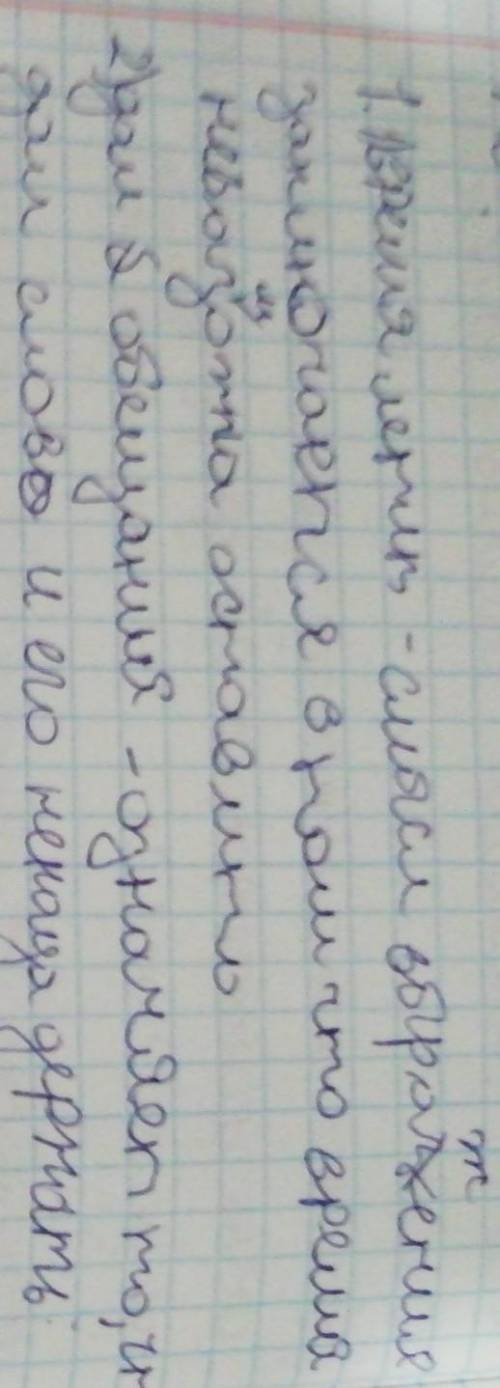 1. Время летит - смысл выражения
заключается в том что время
остановить
2) дал обещания - означает то,
дал слово и его держать.